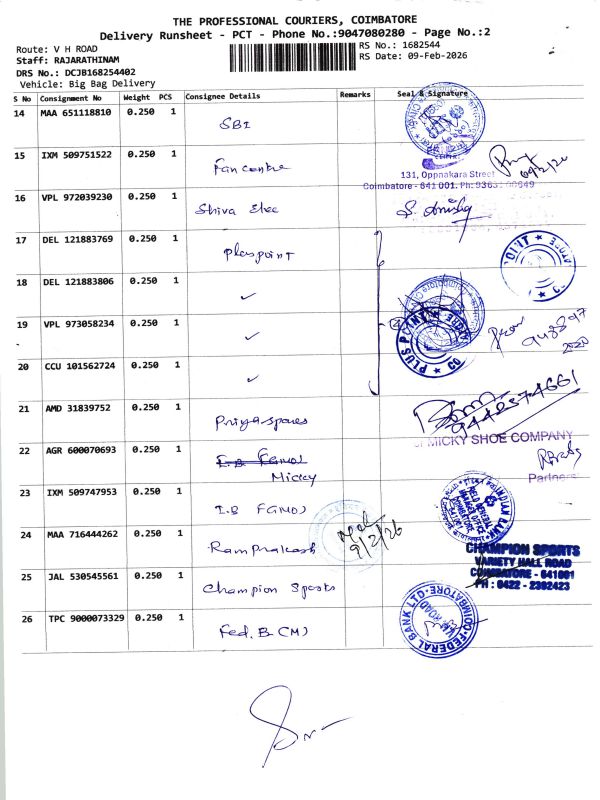 THE PROFESSIONAL COURIERS, COIMBATORE
Delivery Runsheet - PCT - Phone No.:9047080280 - Page No.:2
Route: V H ROAD
RS No.: 1682544
Staff: RAJARATHINAM
RS Date: 09-Feb-2026
DRS No.: DCJB168254402
Vehicle: Big Bag Delivery
S No Consignment No Weight PCS Consignee Details Remarks Seal & Signature
14 MAA 651118810 0.250 1 SBI
15 IXM 509751522 0.250 1 Fan centre
131, Oppnakara Street
Coimbatore - 641 001. Ph: 93631 00649
16 VPL 972039230 0.250 1 Shiva Elec
17 DEL 121883769 0.250 1 Pluspoint
18 DEL 121883806 0.250 1 ✓
19 VPL 973058234 0.250 1 ✓
PLUS POINT
20 CCU 101562724 0.250 1 ✓
21 AMD 31839752 0.250 1 Priya spares
9442574661
22 AGR 600070693 0.250 1 Micky
MICKY SHOE COMPANY
Partner
23 IXM 509747953 0.250 1 I.B F(GMO)
INDIAN BANK
24 MAA 716444262 0.250 1 Ram Prakash
9/2/26
25 JAL 530545561 0.250 1 Champion Sports
CHAMPION SPORTS
VARIETY HALL ROAD
COIMBATORE - 641001
PH : 0422 - 2302423
26 TPC 9000073329 0.250 1 Fed. B (M)
FEDERAL BANK LTD. COIMBATORE